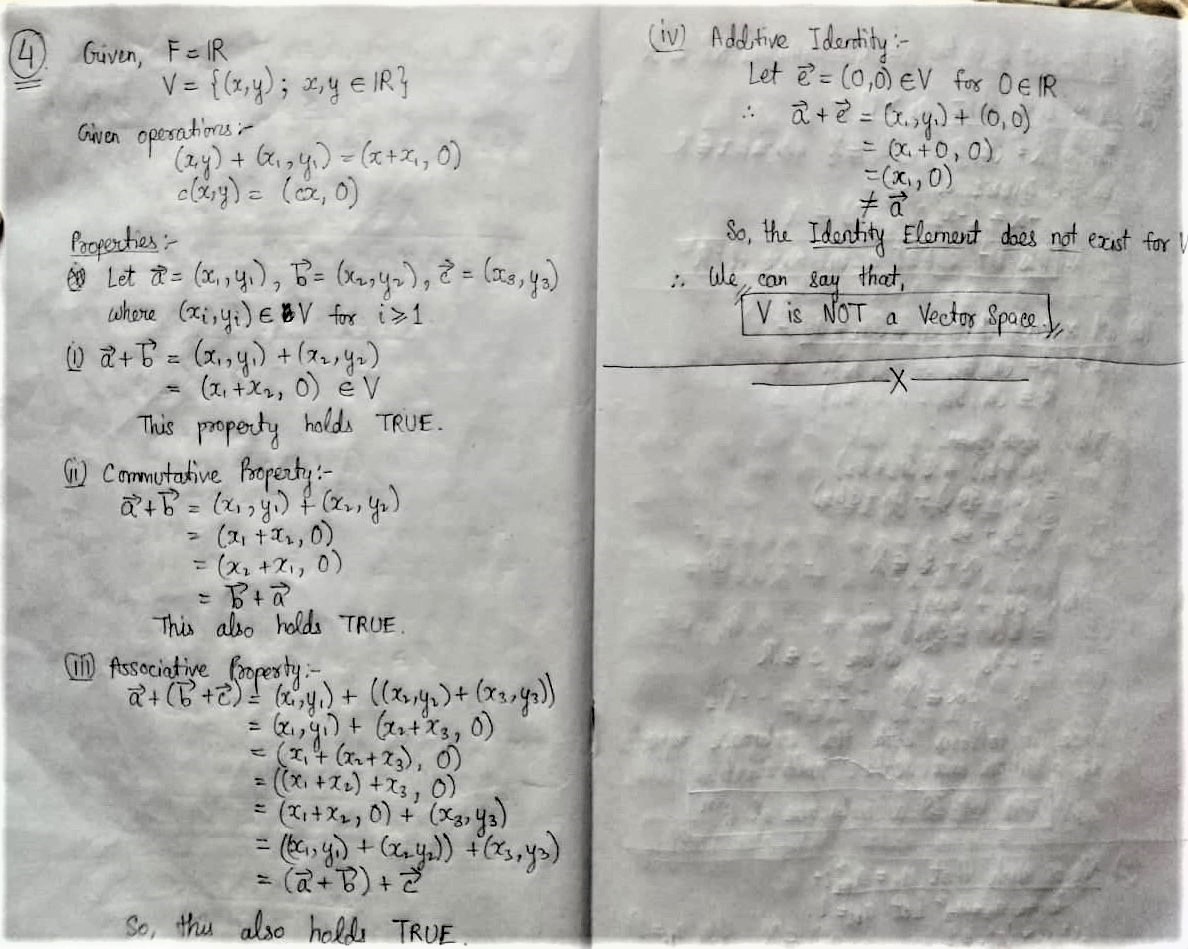 4. Given, F = IR
V = {(x,y) ; x,y ∈ IR}
Given operations :-
(x,y) + (x₁,y₁) = (x+x₁, 0)
c(x,y) = (cx, 0)
Properties :-
Let a⃗ = (x₁,y₁), b⃗ = (x₂,y₂), c⃗ = (x₃,y₃)
where (xᵢ,yᵢ) ∈ V for i ≥ 1
(i) a⃗ + b⃗ = (x₁,y₁) + (x₂,y₂)
= (x₁+x₂, 0) ∈ V
This property holds TRUE.
(ii) Commutative Property:-
a⃗ + b⃗ = (x₁,y₁) + (x₂,y₂)
= (x₁+x₂, 0)
= (x₂+x₁, 0)
= b⃗ + a⃗
This also holds TRUE.
(iii) Associative Property:-
a⃗ + (b⃗ + c⃗) = (x₁,y₁) + ((x₂,y₂) + (x₃,y₃))
= (x₁,y₁) + (x₂+x₃, 0)
= (x₁ + (x₂+x₃), 0)
= ((x₁+x₂) + x₃, 0)
= (x₁+x₂, 0) + (x₃,y₃)
= ((x₁,y₁) + (x₂,y₂)) + (x₃,y₃)
= (a⃗ + b⃗) + c⃗
So, this also holds TRUE.
(iv) Additive Identity:-
Let e⃗ = (0,0) ∈ V for 0 ∈ IR
∴ a⃗ + e⃗ = (x₁,y₁) + (0,0)
= (x₁+0, 0)
= (x₁, 0)
≠ a⃗
So, the Identity Element does not exist for V
∴ We can say that,
V is NOT a Vector Space.
X